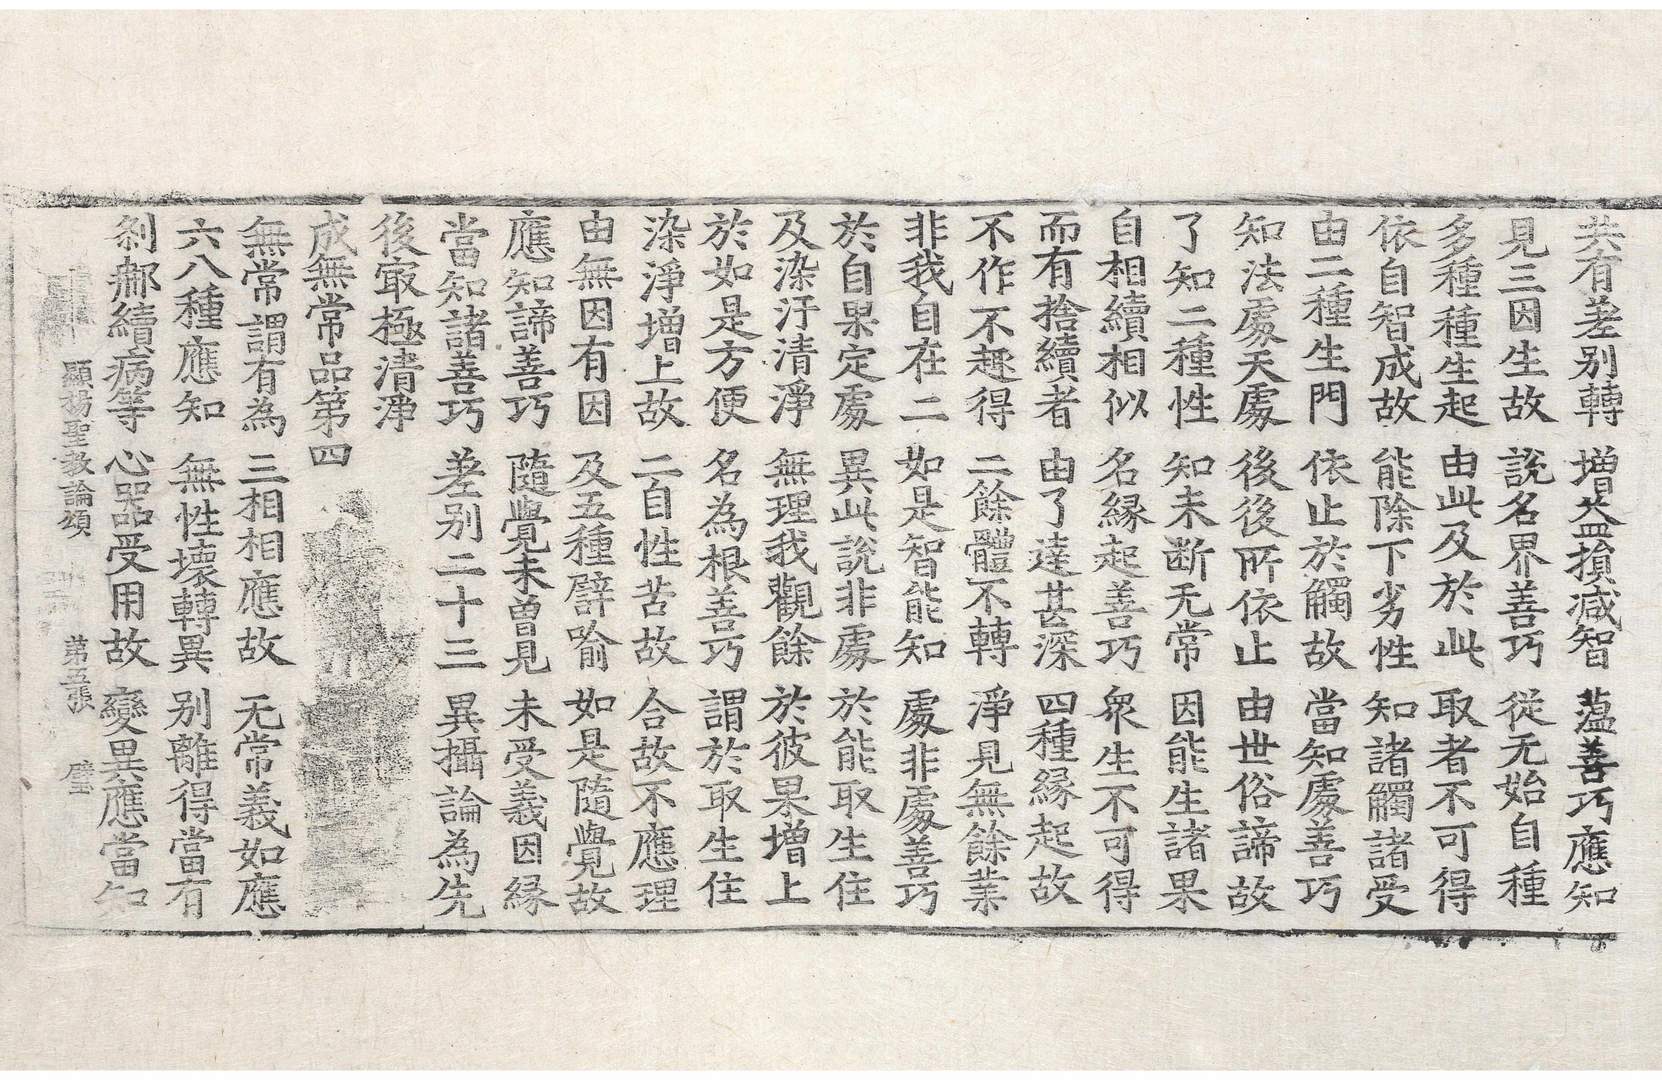 共有差别轉 增益損減智 薀善巧應知
見三因生故 說名界善巧 從无始自種
多種種生起 由此及於此 取者不可得
依自智成故 能除下劣性 知諸觸諸受
由二種生門 依止於觸故 當知處善巧
知法處天處 後後所依止 由世俗諦故
了知二種性 知未断无常 因能生諸果
自相續相似 名緣起善巧 衆生不可得
而有捨續者 由了達甚深 四種緣起故
不作不趣得 二餘體不轉 淨見無餘業
非我自在二 如是智能知 處非處善巧
於自果定處 異此說非處 於能取生住
及染汙清淨 無理我觀餘 於彼果增上
於如是方便 名為根善巧 謂於取生住
染淨增上故 二自性苦故 合故不應理
由無因有因 及五種譬喻 如是隨覺故
應知諦善巧 隨覺未曾見 未受義因緣
當知諸善巧 差别二十三 異攝論為先
後㝡極清淨
成無常品第四
無常謂有為 三相相應故 无常義如應
六八種應知 無性壞轉異 别離得當有
剎那續病等 心器受用故 變異應當知
顯揚聖教論頌 第五張 璧